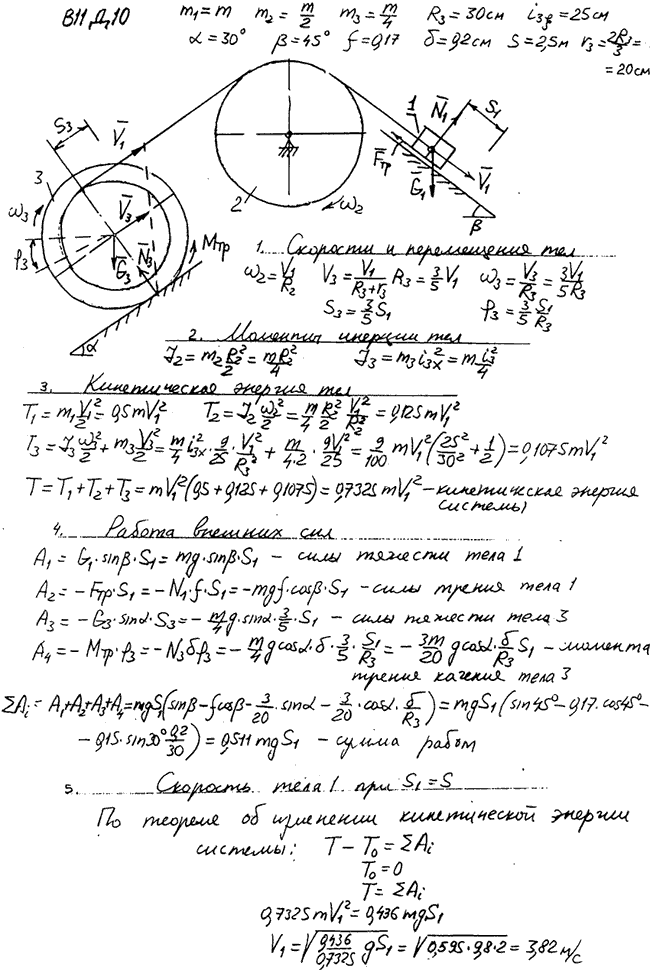 В11 Д10 m₁ = m m₂ = m/2 m₃ = m/4 R₃ = 30 см i₃ξ = 25 см
α = 30° β = 45° f = 0,17 δ = 0,2 см S = 2,5 м r₃ = 2R₃/3 =
= 20 см
S₃ V̄₁ 1 N̄₁ S₁
3 V̄₃ F̄тр Ḡ₁ V̄₁
ω₃ N̄₃ Mтр 2 ω₂ β
φ₃ Ḡ₃
α
1. Скорости и перемещения тел
ω₂ = V₁/R₂ V₃ = V₁/(R₃+r₃) R₃ = 3/5 V₁ ω₃ = V₃/R₃ = 3V₁/5R₃
S₃ = 3/5 S₁ φ₃ = 3/5 S₁/R₃
2. Моменты инерции тел
J₂ = m₂ R₂²/2 = mR₂²/4 J₃ = m₃ i₃ₓ² = m i₃²/4
3. Кинетическая энергия тел
T₁ = m₁ V₁²/2 = 0,5 mV₁² T₂ = J₂ ω₂²/2 = m/4 R₂²/2 V₁²/R₂² = 0,125 mV₁²
T₃ = J₃ ω₃²/2 + m₃ V₃²/2 = m/4 i₃ₓ² · 9/25 · V₁²/R₃² + m/4·2 · 9V₁²/25 = 9/100 mV₁² (25²/30² + 1/2) = 0,1075 mV₁²
T = T₁ + T₂ + T₃ = mV₁² (0,5 + 0,125 + 0,1075) = 0,7325 mV₁² – кинетическая энергия
системы
4. Работа внешних сил
A₁ = G₁·sinβ·S₁ = mg·sinβ·S₁ – силы тяжести тела 1
A₂ = – Fтр·S₁ = – N₁·f·S₁ = – mgf·cosβ·S₁ – силы трения тела 1
A₃ = – G₃·sinα·S₃ = – m/4 g·sinα·3/5·S₁ – силы тяжести тела 3
A₄ = – Mтр·φ₃ = – N₃δφ₃ = – m/4 g cosα·δ·3/5·S₁/R₃ = – 3m/20 g cosα·δ/R₃ S₁ – момента
трения качения тела 3
ΣAᵢ = A₁+A₂+A₃+A₄ = mgS₁(sinβ – f cosβ – 3/20·sinα – 3/20·cosα·δ/R₃) = mgS₁(sin45° – 0,17·cos45° –
– 0,15·sin30° 0,2/30) = 0,511 mgS₁ – сумма работ
5. Скорость тела 1 при S₁ = S
По теореме об изменении кинетической энергии
системы: T – T₀ = ΣAᵢ
T₀ = 0
T = ΣAᵢ
0,7325 mV₁² = 0,436 mgS₁
V₁ = √(0,436/0,7325 gS₁) = √(0,595·9,8·2) = 3,82 м/с